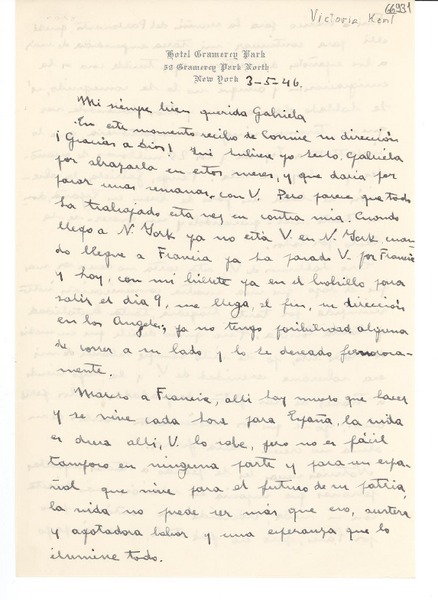 66931
Victoria Kent
Hotel Gramercy Park
52 Gramercy Park North
New York
3-5-46.
Mi siempre bien querida Gabriela
En este momento recibo de Connie su dirección
¡Gracias a Dios! hubiere yo hecho, Gabriela
por abrazarla en estos meses, y que daría por
pasar unas semanas con V. Pero parece que todo
ha trabajado esta vez en contra mía. Cuando
llego a N. York ya no está V. en N. York, cuan
do llegue a Francia ya ha pasado V. por Francia
y hoy, con mi billete ya en el bolsillo para
salir el día 9, me llega, al fin, su dirección
en los Angeles; ya no tengo posibilidad alguna
de correr a su lado y lo he deseado fervorosa-
mente.
Marcho a Francia, allí hay mucho que hacer
y se vive cada hora para España, la vida
es dura allí, V. lo sabe, pero no es fácil
tampoco en ninguna parte y para un espa-
ñol que vive para el futuro de su patria,
la vida no puede ser más que eso, austera
y agotadora labor y una esperanza que lo
ilumine todo.